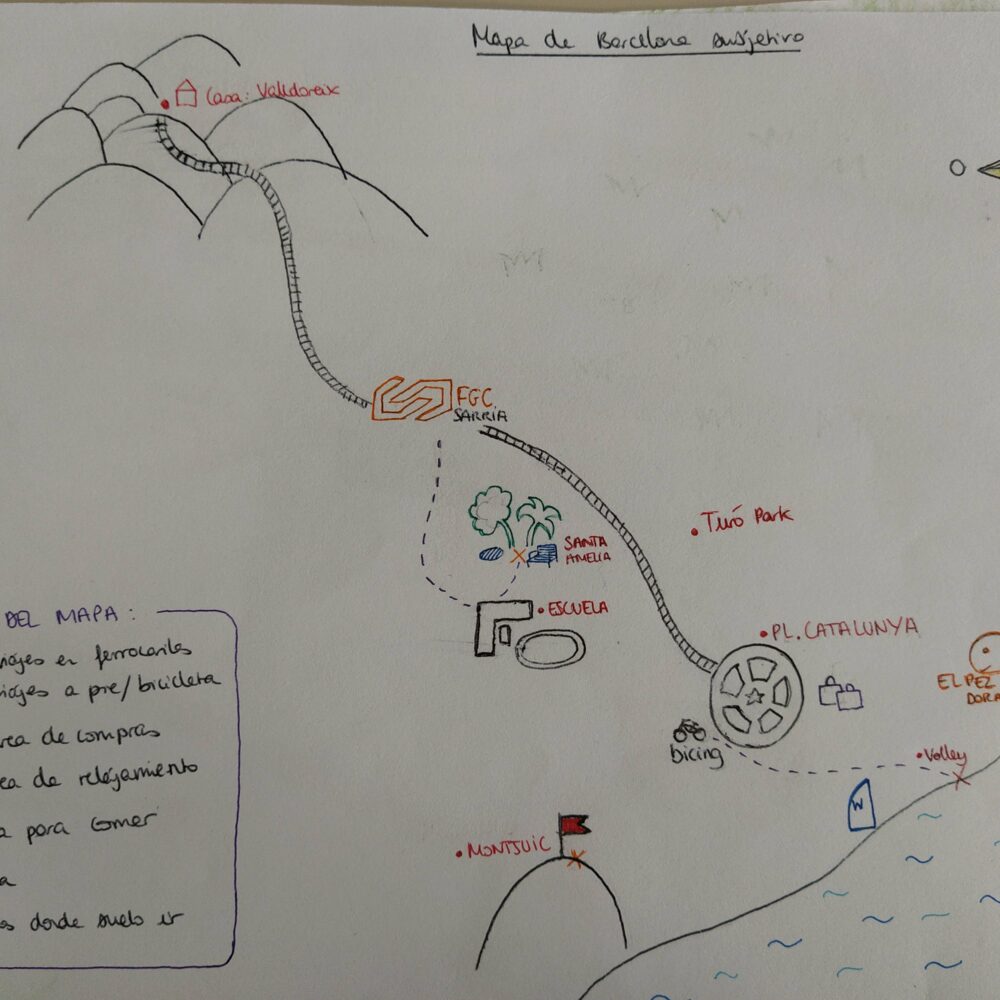 Mapa de Barcelona subjetivo
Casa: Valldoreix
O
FGC
SARRIA
Turó Park
SANTA
AMELIA
ESCUELA
PL. CATALUNYA
EL PEZ
DORA
bicing
Volley
W
MONTJUIC
DEL MAPA:
iajes en ferrocarriles
iajes a pie/bicicleta
rea de compras
ea de relajamiento
a para comer
a
s donde suelo ir